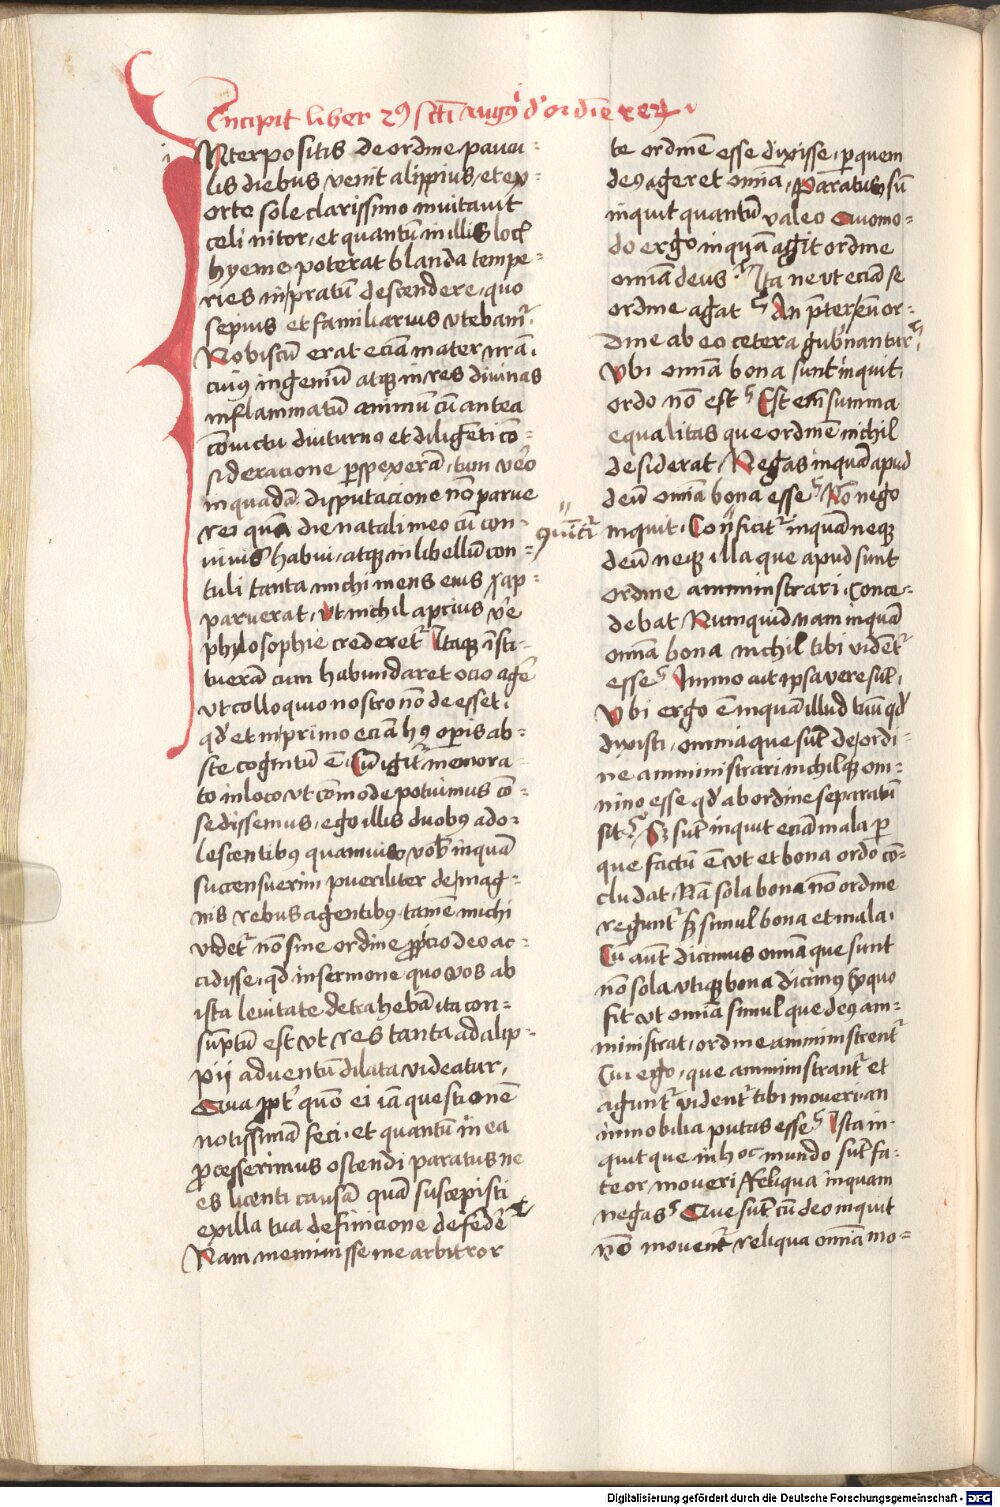 Incipit liber 2ꝰ sc̄ti augꝰ d' ordīe rerꝝ
INterpositis de ordine paucu-
lis diebus venit alippius, et ex-
orto sole clarissimo inuitauit
celi nitor, et quantū in illis locꝭ
hyeme poterat blanda tempe-
ries in pratū descendere, quo
sepius et familiarius vtebamͬ.
Nobiscū erat eciā mater nrā.
cuiꝰ ingeniū atqꝫ in res diuinas
inflammatū animū cū antea
cōuictu diuturno et diligēti cō-
sideracione ꝑspexerā, tum vēo
in quadā disputacione nō parue
rei quā die natali meo cū con-
uiuis habui, atqꝫ in libellū con-
tuli tanta michi mens eius ap-
paruerat, vt nichil apcius vēe
phylosophie crederetͬ Itaqꝫ īsti-
tuerā cum habundaret ocio agē
vt colloquio nostro nō de esset.
qd' et in primo eciā hꝰ opīs ab-
ste cognitū ē. Cū igitͬ memora-
to in loco vt cōmode potuimus cō-
sedissemus, ego illis duobꝰ ado-
lescentibꝰ quamuis vob' inquā
succensuerim pueriliter de mag-
nis rebus agentibꝰ. tamē michi
videtͬ nō sine ordine ꝓpicio deo ac-
cidisse, qd in sermone quo vos ab
ista leuitate detrahebā ita con-
sūptū est vt res tanta ad alip-
pii aduentū dilata videatur,
Qua ꝓptͬ quō ei iā questionē
notissimā feci, et quantū in ea
ꝓcesserimus ostendi paratus ne
es licenti causā quā suscepisti
ex illa tua definicione defēdē
Nam meminisse me arbitror
te ordinē esse dixisse, ꝑ quem
deꝰ ageret omīa, Paratus sū
inquit quantū valeo Quomo-
do ergo inquā agit ordine
omīa deus Ita ne vt eciā se
ordine agat An p̄ter eū or-
dine ab eo cetera gub'nantur
Vbi omīa bona sunt inquit.
ordo nō est Est em̄ summa
equalitas que ordinē nichil
desiderat, Negas inquā apud
deū omīa bona esse Nō nego
inquit. Conficitͬ inquā neqꝫ
deū neqꝫ illa que apud sunt
ordine amministrari. Conce-
debat Numquid nam inquā
omīa bona nichil tibi vidētͬ
esse Immo ait ipsa vere sūt,
Vbi ergo ē inquā illud tuū qd'
dixisti, omnia que sūt de ordi-
ne amministrari nichilqꝫ om-
nino esse qd' ab ordine separatū
sit Sꝫ sūt inquit eciā mala ꝑ
que factū ē vt et bona ordo cō-
cludat, Nā sola bona nō ordine
reguntͬ sꝫ simul bona et mala,
Cū aut̄ dicimus omīa que sunt
nō sola vtiqꝫ bona dicimꝰ Ex quo
fit vt omīa simul que deꝰ am-
ministrat, ordine amministrentͬ
Cui ergo, que amministrantͬ et
aguntͬ videntͬ tibi moueri an
inmobilia putas esse Ista in-
quit que in hoc mundo sūt fa-
teor moueri Reliqua inquam
negas Que sūt cū deo inquit
nō mouentͬ reliqua omīa mo-
Digitalisierung gefördert durch die Deutsche Forschungsgemeinschaft - DFG